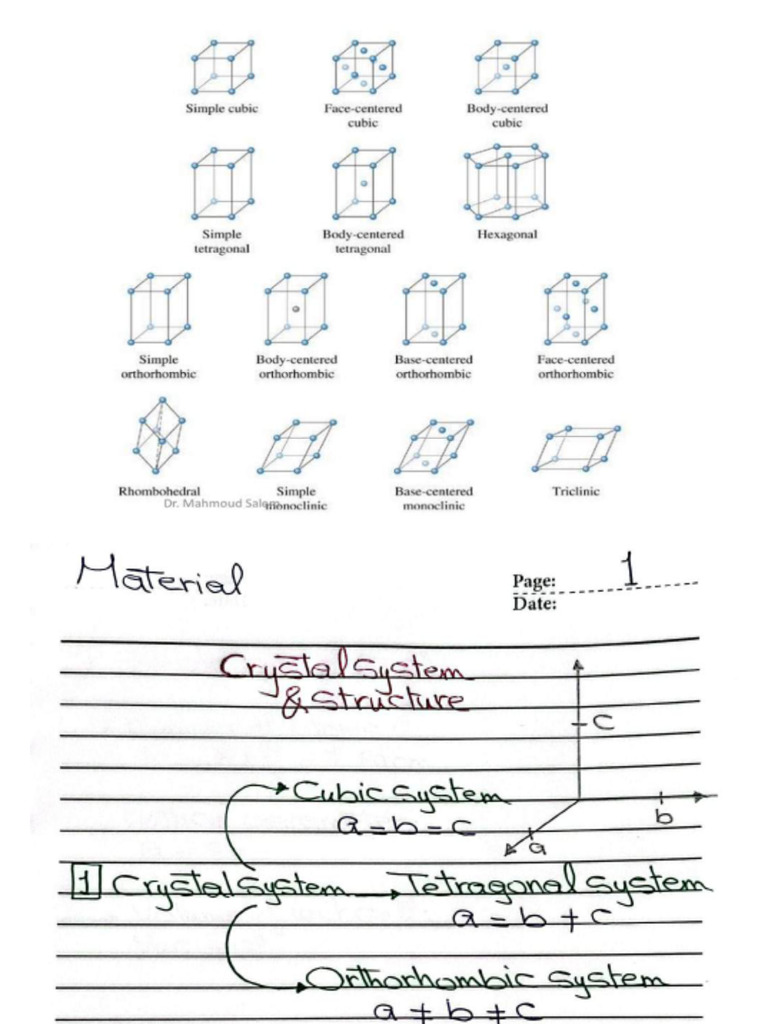 Simple cubic Face-centered Body-centered
cubic cubic
Simple Body-centered Hexagonal
tetragonal tetragonal
Simple Body-centered Base-centered Face-centered
orthorhombic orthorhombic orthorhombic orthorhombic
Rhombohedral Simple Base-centered Triclinic
Dr. Mahmoud Salem monoclinic monoclinic
Material Page: 1
Date:
Crystal system
& structure
c
Cubic system
b
a = b = c
a
1 Crystal system → Tetragonal system
a = b ≠ c
Orthorhombic system
a ≠ b ≠ c